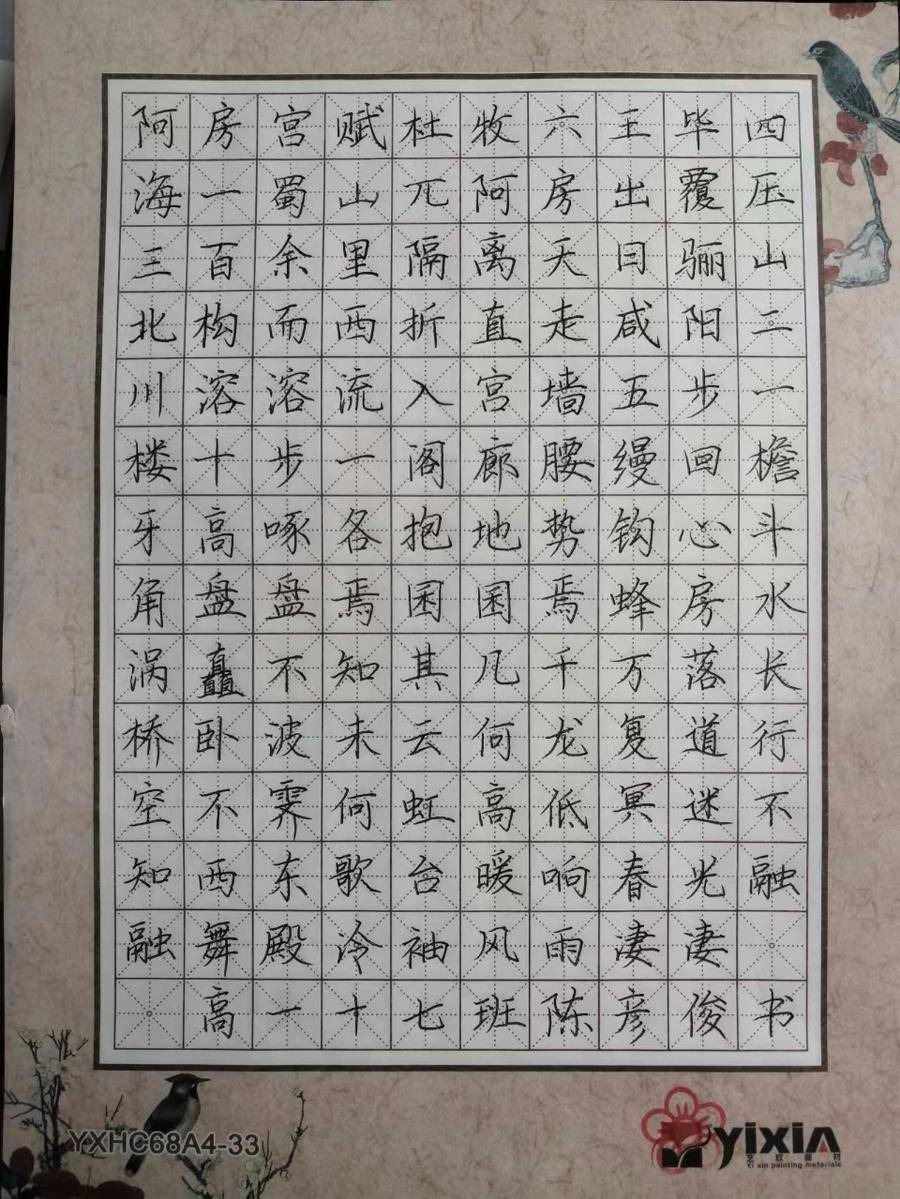 阿房宫赋杜牧六王毕四
海一蜀山兀阿房出覆压
三百余里隔离天日骊山
北构而西折直走咸阳二
川溶溶流入宫墙五步一
楼十步一阁廊腰缦回檐
牙高啄各抱地势钩心斗
角盘盘焉囷囷焉蜂房水
涡矗不知其几千万落长
桥卧波未云何龙复道行
空不霁何虹高低冥迷不
知西东歌台暖响春光融
融舞殿冷袖风雨凄凄
高一十七班陈彦俊书
YXHC68A4-33
yixin
艺欣画材
Yi xin painting materials